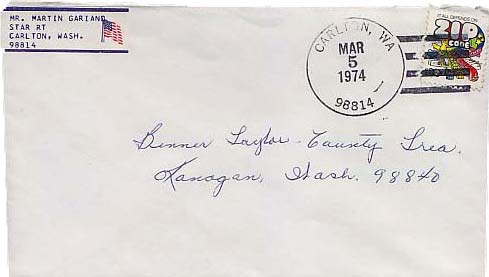 MR. MARTIN GARLAND
STAR RT
CARLTON, WASH.
98814
CARLTON, WA
MAR
5
1974
98814
IT ALL DEPENDS ON
ZIP
CODE
Benner Taylor - County Trea.
Kanogan, Wash. 98840